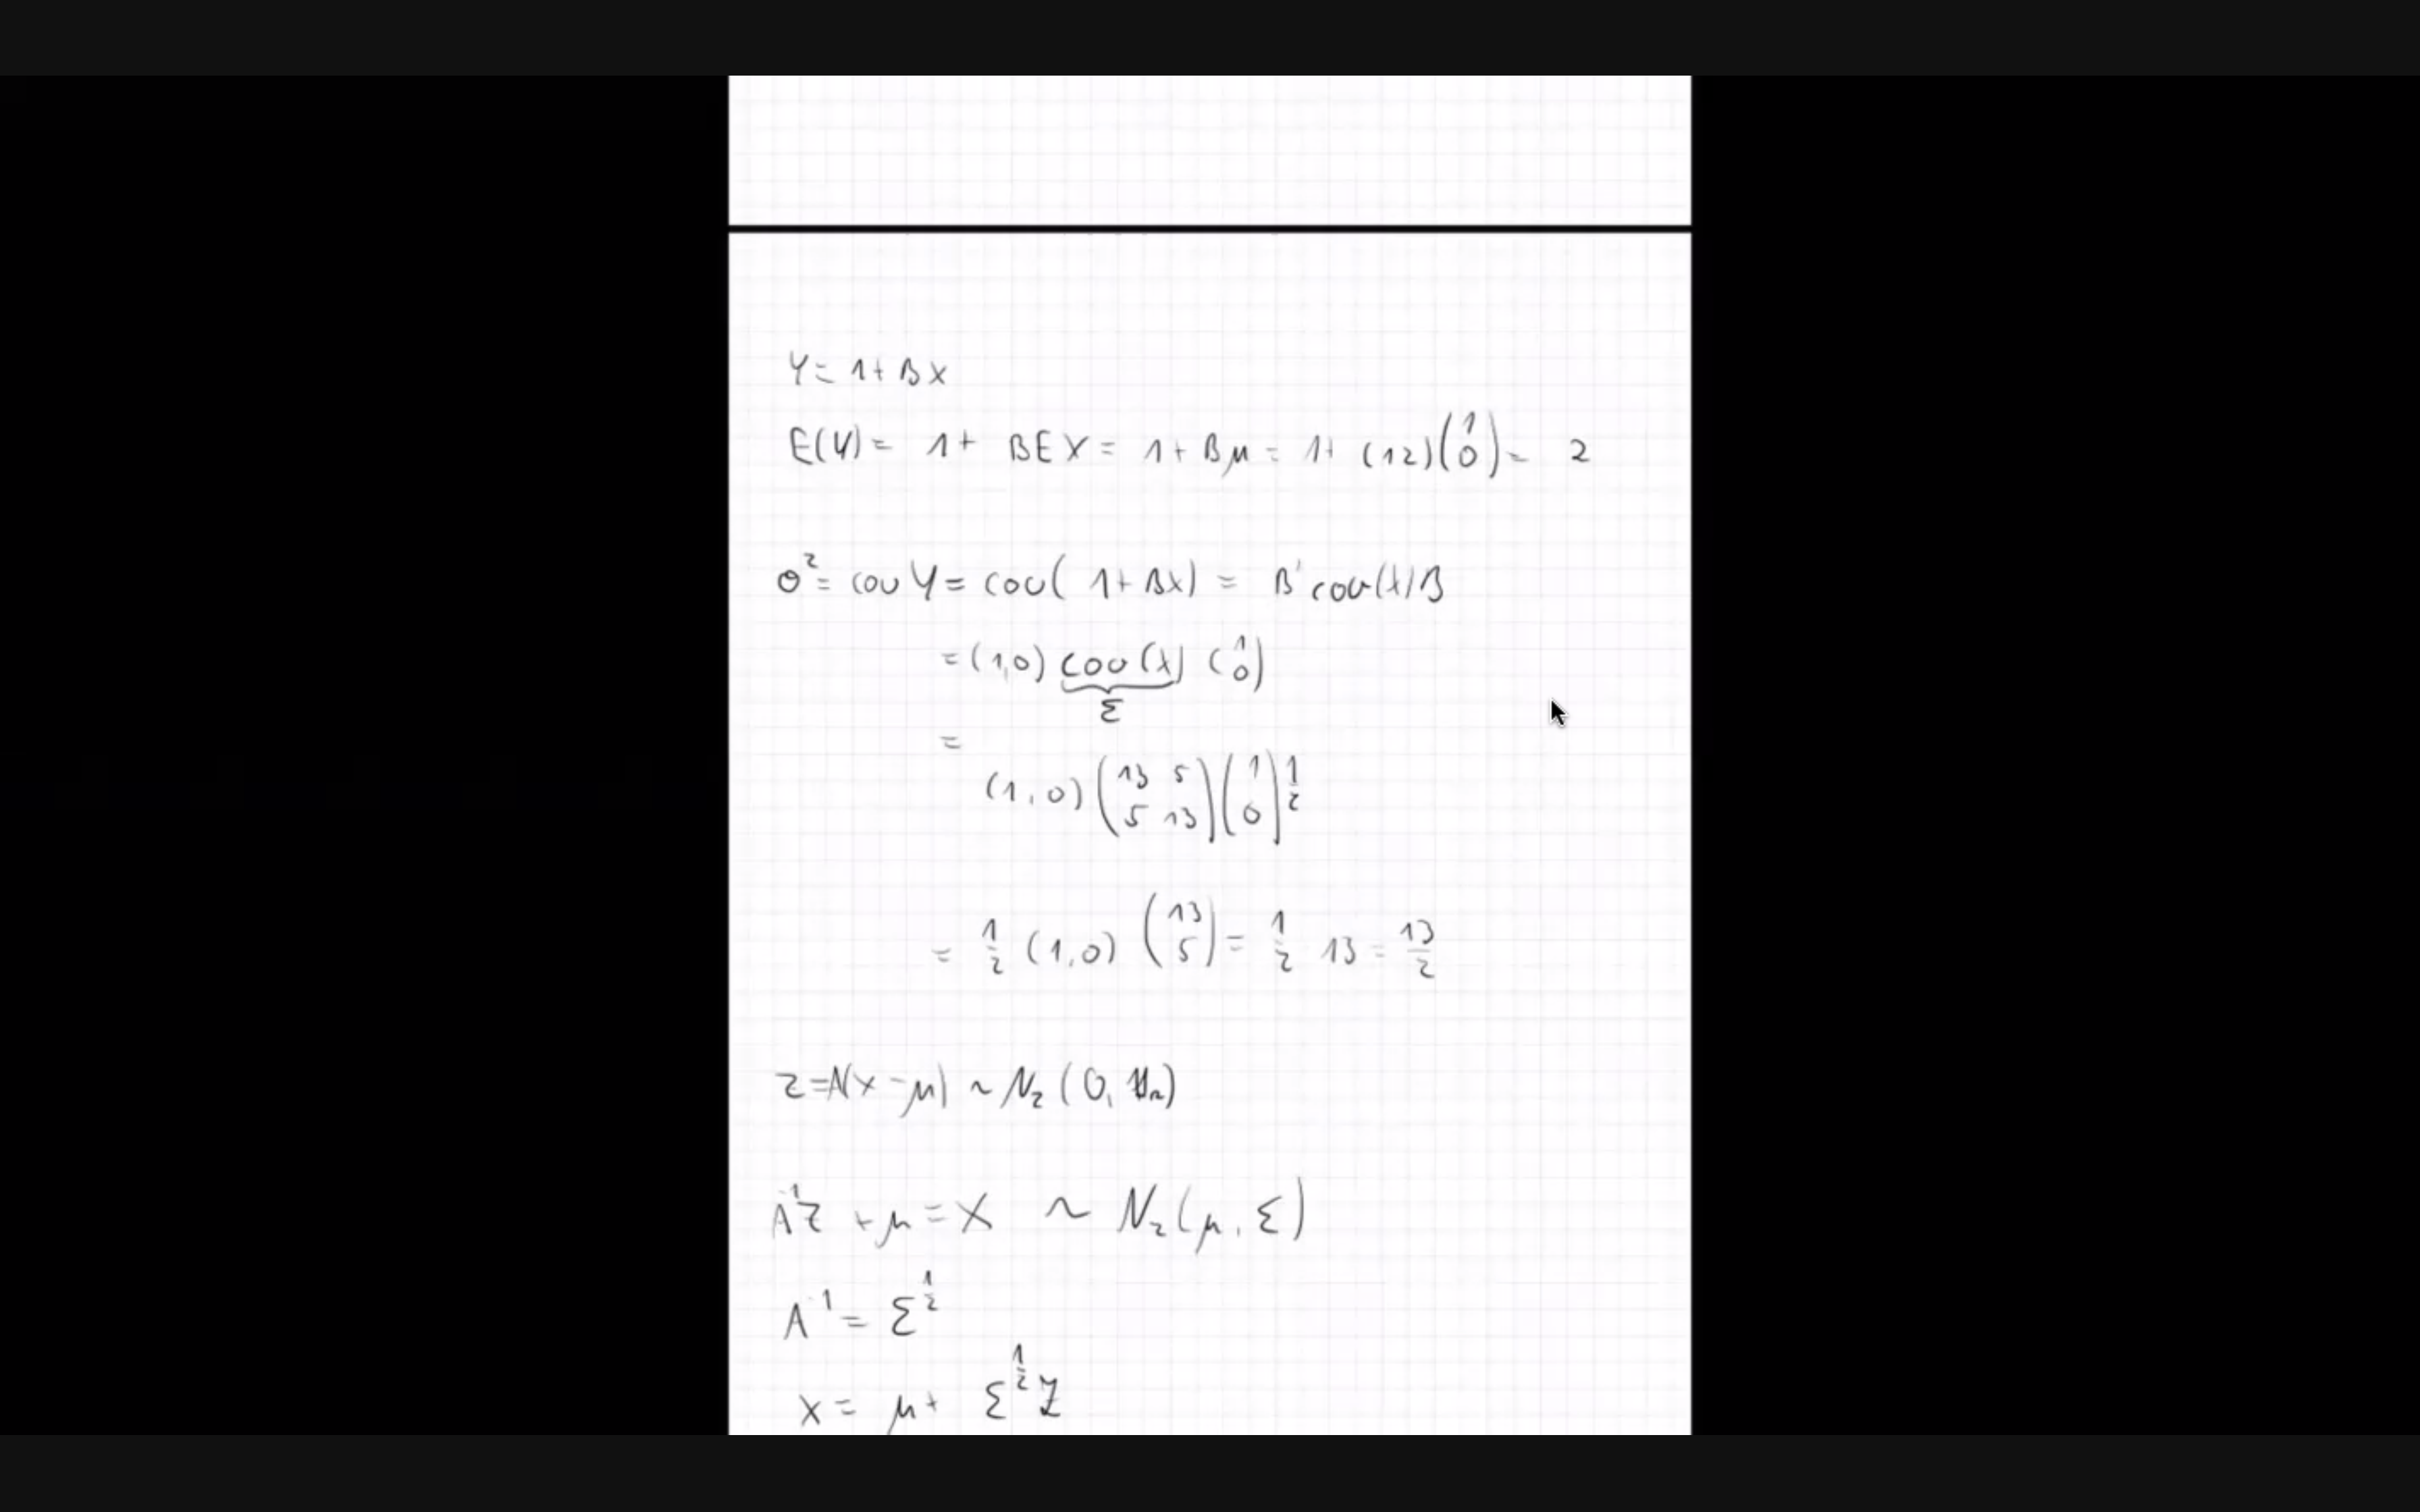 Y = 1 + BX
E(Y) = 1 + BEX = 1 + Bμ = 1 + (1 2) (1 0) = 2
σ² = cov Y = cov( 1 + BX) = B' cov(X) B
= (1,0) cov(X) (1 0)
Σ
=
(1, 0) (13 5 5 13) (1 0) 1/2
= 1/2 (1,0) (13 5) = 1/2 13 = 13/2
Z = A(X - μ) ~ N₂ (0, 1ₙ)
A⁻¹Z + μ = X ~ N₂(μ, Σ)
A⁻¹ = Σ^1/2
X = μ + Σ^1/2 Z